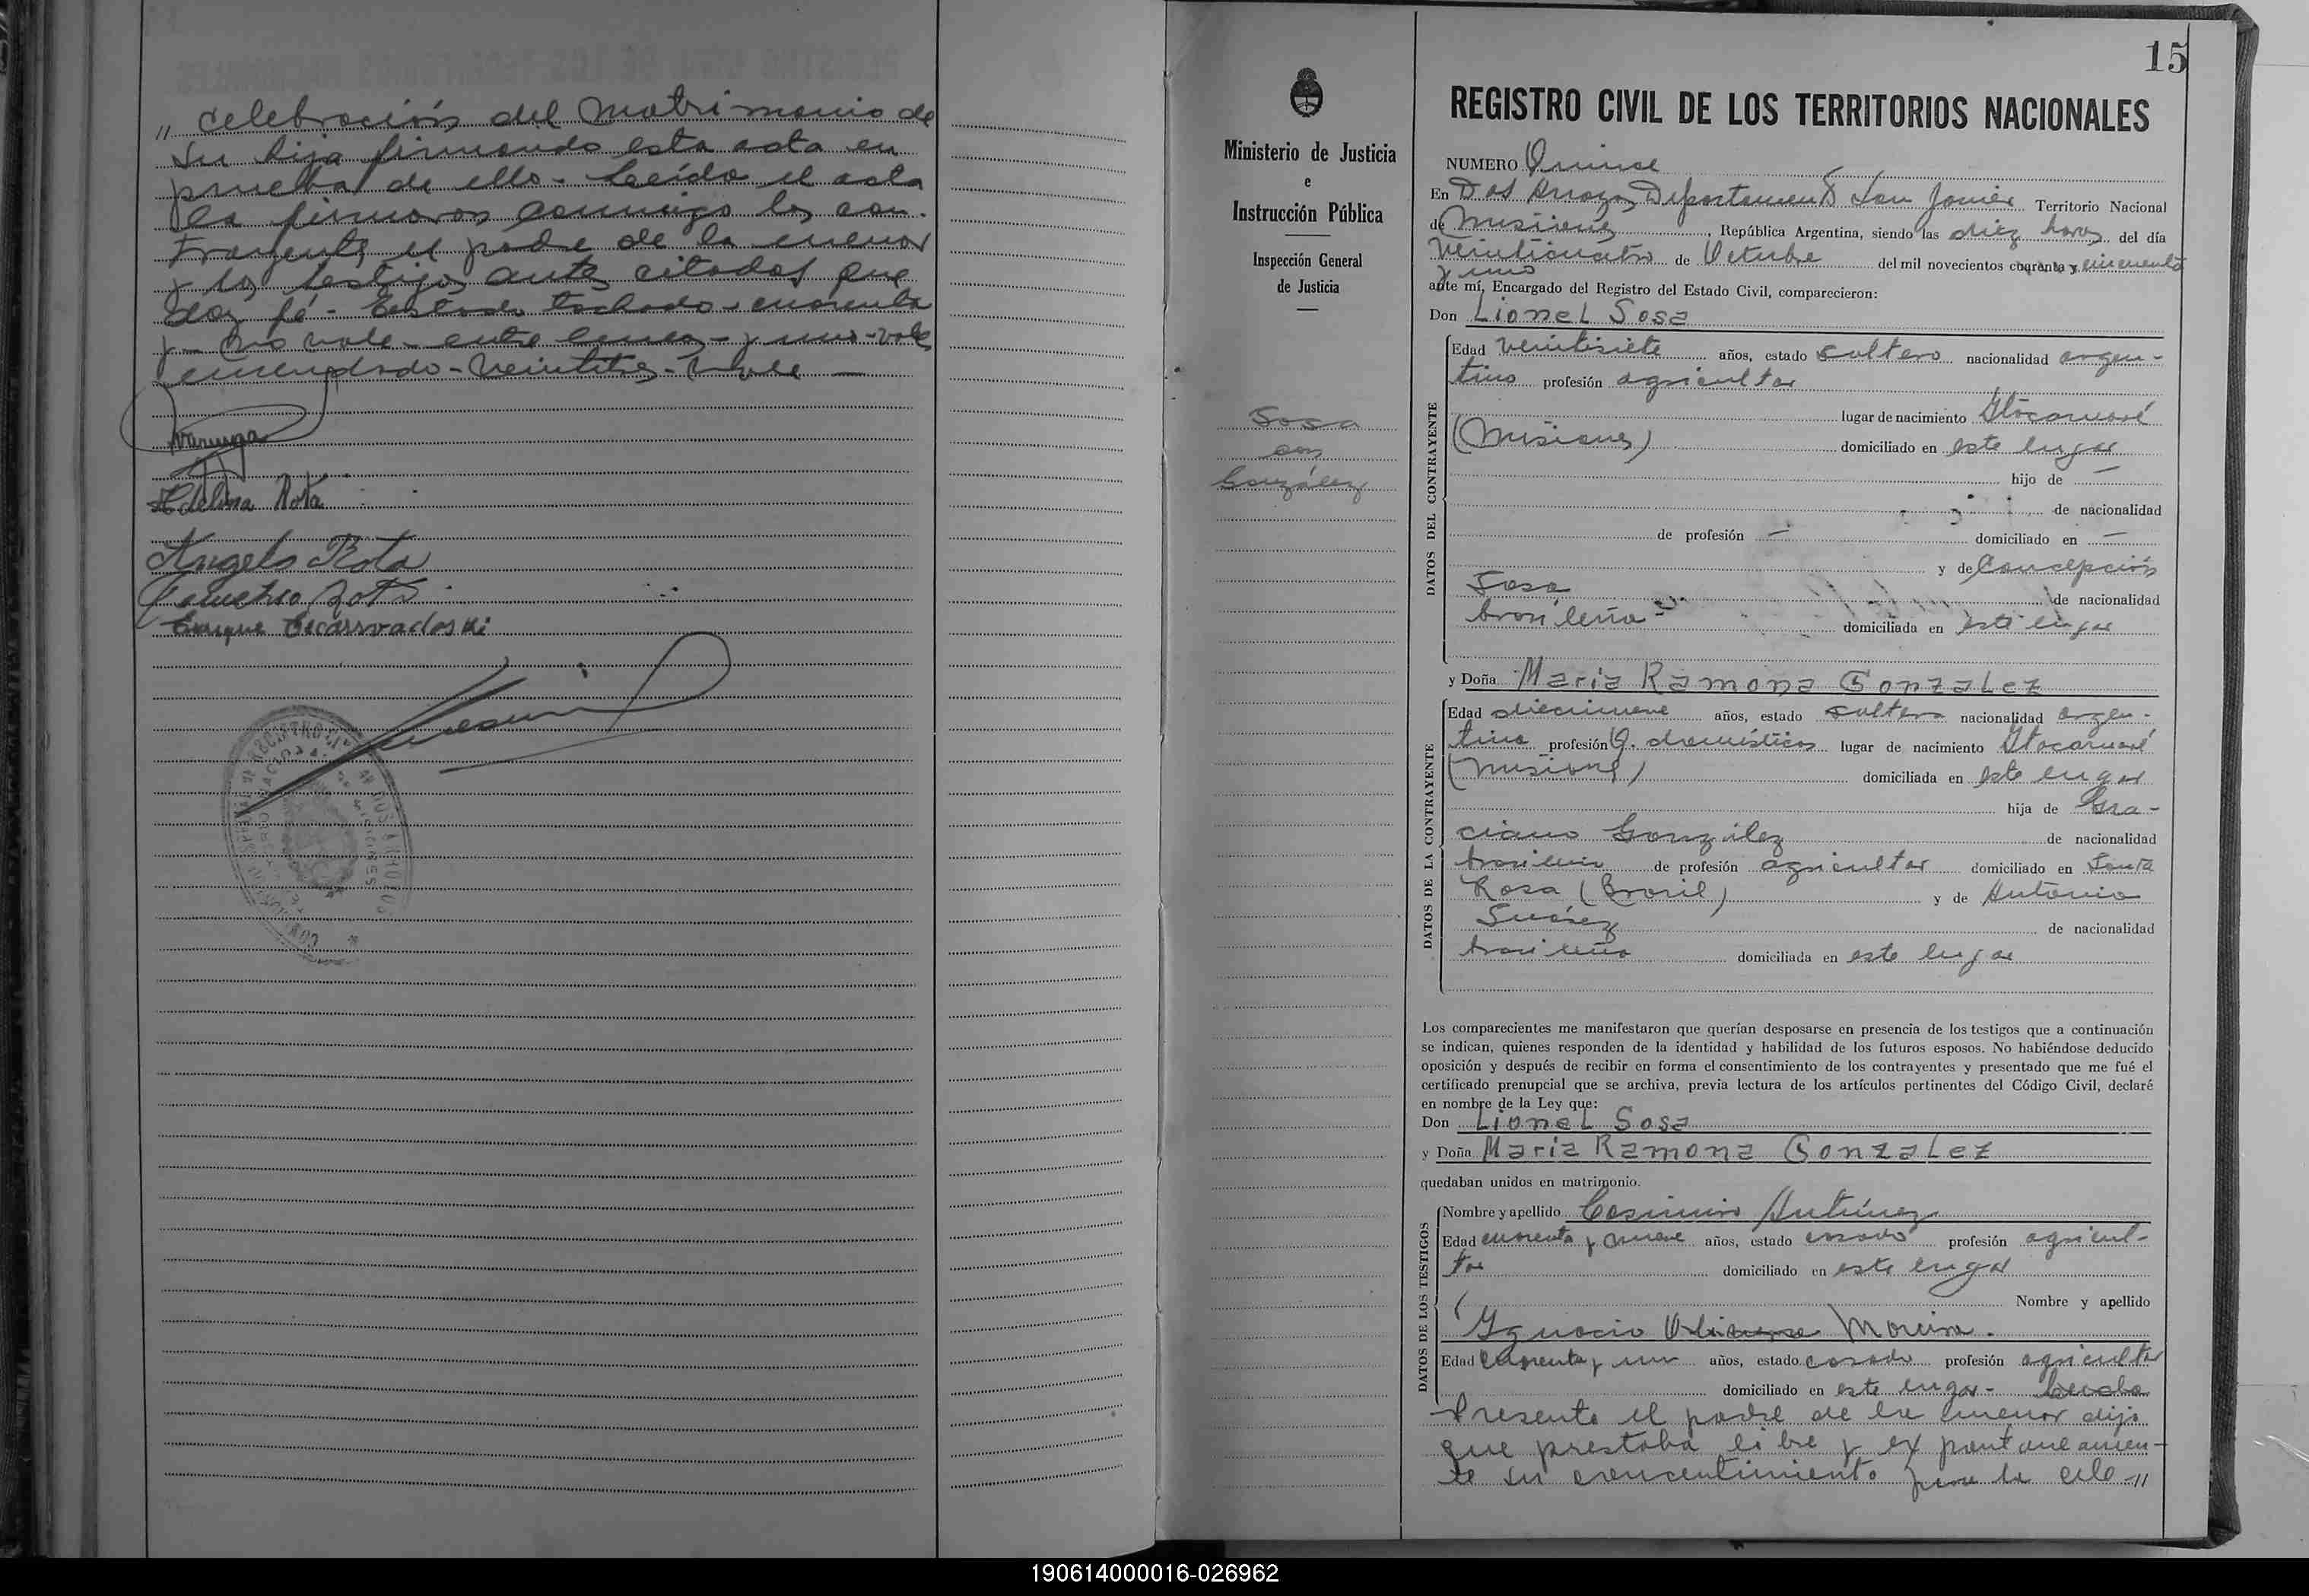 " celebración del matrimonio de
su hija firmando esta acta en
prueba de ello - Leída el acta
la firmaron conmigo los con-
trayentes el padre de la menor
y los testigos antes citados que
doy fé - Testado tachado - cuarenta
y - no vale - entre lineas - y uno - vale
emendado - veintitres - vale -
Adelina Rota
Angelo Rota
Rota
Enrique
15
Ministerio de Justicia
e
Instrucción Pública
Inspección General
de Justicia
Sosa
con
González
REGISTRO CIVIL DE LOS TERRITORIOS NACIONALES
NUMERO Quince
En Dos Arroyos Departamento San Javier Territorio Nacional
de Misiones, República Argentina, siendo las diez horas del día
veinticuatro de Octubre del mil novecientos cuarenta y cincuenta
y uno
ante mí, Encargado del Registro del Estado Civil, comparecieron:
Don Lionel Sosa
DATOS DEL CONTRAYENTE
Edad veintisiete años, estado soltero nacionalidad argen-
tino profesión agricultor
lugar de nacimiento Itacaruaré
(Misiones) domiciliado en este lugar
hijo de —
de nacionalidad
de profesión — domiciliado en —
y de Concepción
Sosa de nacionalidad
brasileña domiciliada en este lugar
y Doña Maria Ramona Gonzalez
DATOS DE LA CONTRAYENTE
Edad diecinueve años, estado soltera nacionalidad argen-
tina profesión Q. domésticos lugar de nacimiento Itacaruaré
(Misiones) domiciliada en este lugar
hija de Gra-
ciano González de nacionalidad
brasilero de profesión agricultor domiciliado en Santa
Rosa (Brasil) y de Antonia
Suárez de nacionalidad
brasileña domiciliada en este lugar
Los comparecientes me manifestaron que querían desposarse en presencia de los testigos que a continuación
se indican, quienes responden de la identidad y habilidad de los futuros esposos. No habiéndose deducido
oposición y después de recibir en forma el consentimiento de los contrayentes y presentado que me fué el
certificado prenupcial que se archiva, previa lectura de los artículos pertinentes del Código Civil, declaré
en nombre de la Ley que:
Don Lionel Sosa
y Doña Maria Ramona Gonzalez
quedaban unidos en matrimonio.
DATOS DE LOS TESTIGOS
Nombre y apellido Casimiro Antúnez
Edad cuarenta y nueve años, estado casado profesión agricul-
tor domiciliado en este lugar
Nombre y apellido
Ygnacio Moreira
Edad cuarenta y un años, estado casado profesión agricultor
domiciliado en este lugar -
Presente el padre de la menor dijo
que prestaba libre y expontaneamen-
te su concentimiento para la cele-"
190614000016-026962